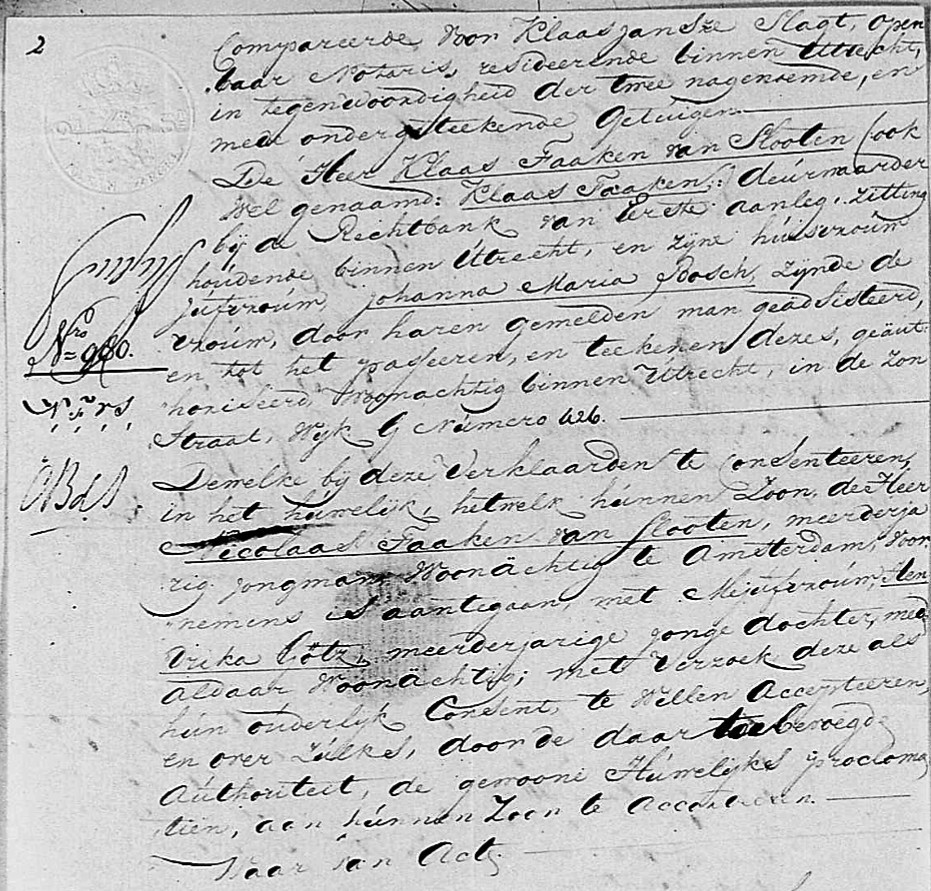 2
Compareerde voor Klaas Jansze Slagt, open
baar Notaris, resideerende binnen Utrecht,
in tegenwoordigheid der twee nagenoemde, en
mede ondergeteekende Getuigen.
De Heer Klaas Faaken van Slooten (ook
wel genaamd: Klaas Faaken,: deurwaarder
bij de Rechtbank van Eerste aanleg, zitting
houdende binnen Utrecht, en zijne huisvrouw
Jufvrouw, Johanna Maria Bosch, zijnde de
vrouw, door haren gemelden man geädsisteerd,
Nro 980.
en tot het passeeren, en teekenen dezes, geäut:
horiseerd, Woonachtig binnen Utrecht, in de Zon
Straat, Wijk G Numero 426.
Dewelke bij deze verklaarden te Consenteeren,
in het huwelijk, hetwelk hunnen Zoon, de Heer
Nicolaas Faaken van Slooten, meerderja
rig jongman, Woonächtig te Amsterdam, voor
nemens is aantegaan, met Mejufvrouw, Hen
drika Götz, meerderjarige jonge dochter, mede
aldaar Woonächtig; met verzoek deze als
hun ouderlijk Consent, te willen Accepteeren,
en over zulks, door de daar toe bevoegde
Authoriteit, de gewoone Huwelijks proclama
tien, aan hunnen Zoon te Accordeeren.
Waar van Acte